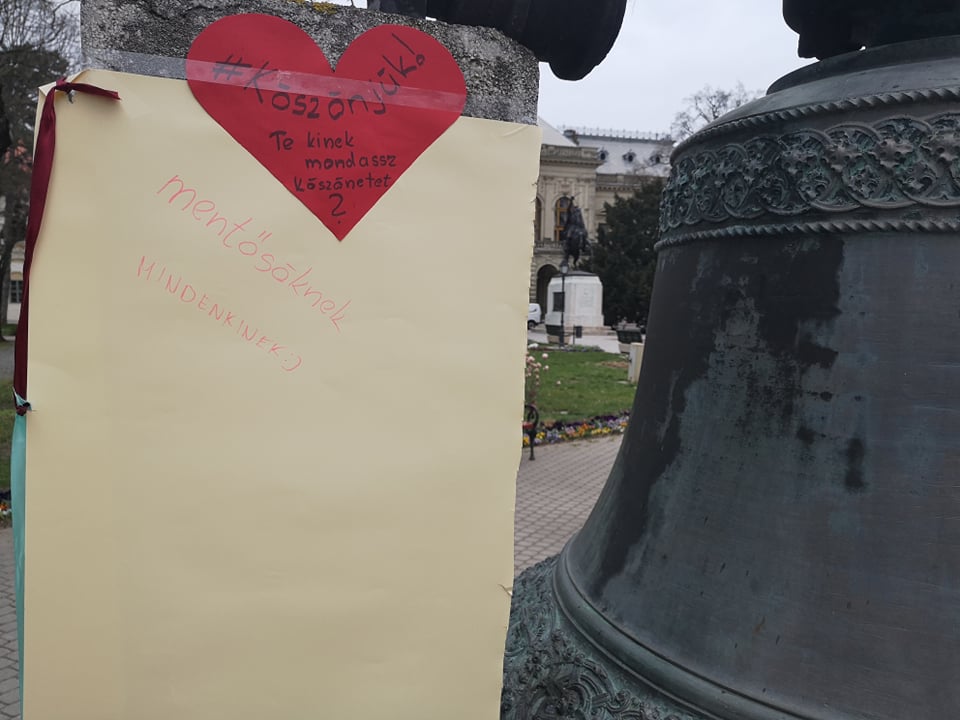 #Köszönjük!
Te kinek
mondassz
köszönetet
?
mentősöknek
MINDENKINEK:)